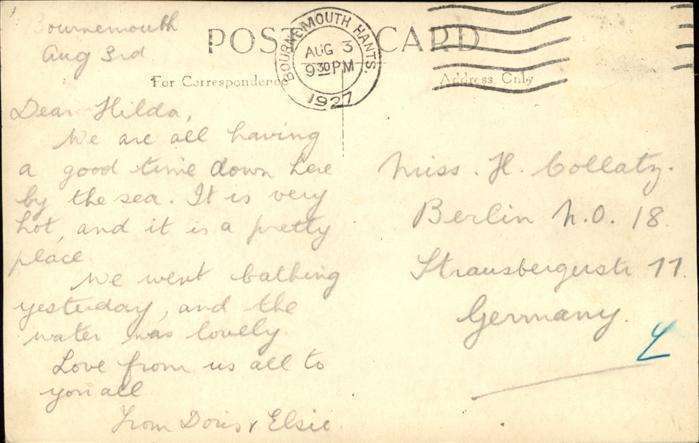 Bournemouth
Aug 3rd
POST CARD
BOURNEMOUTH HANTS.
AUG 3
9 30 PM
1927
For Correspondence
Address Only
Dear Hilda,
We are all having
a good time down here
by the sea. It is very
hot, and it is a pretty
place
We went bathing
yesterday, and the
water was lovely.
Love from us all to
you all
From Doris & Elsie.
Miss. H. Collatz.
Berlin N.O. 18.
Strausbergerstr 11.
Germany.